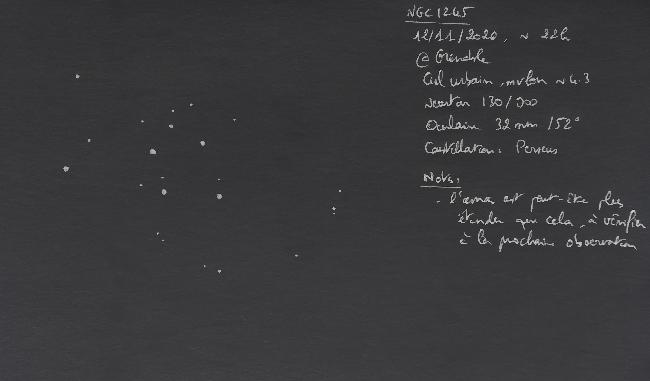 NGC 1245
12/11/2020, ~ 22h
@ Grenoble
Ciel urbain, mvlon ~ 4.3
Newton 130/900
Oculaire 32 mm / 52°
Constellation : Perseus
Notes :
- l'amas est peut-être plus
étendu que cela, à vérifier
à la prochaine observation